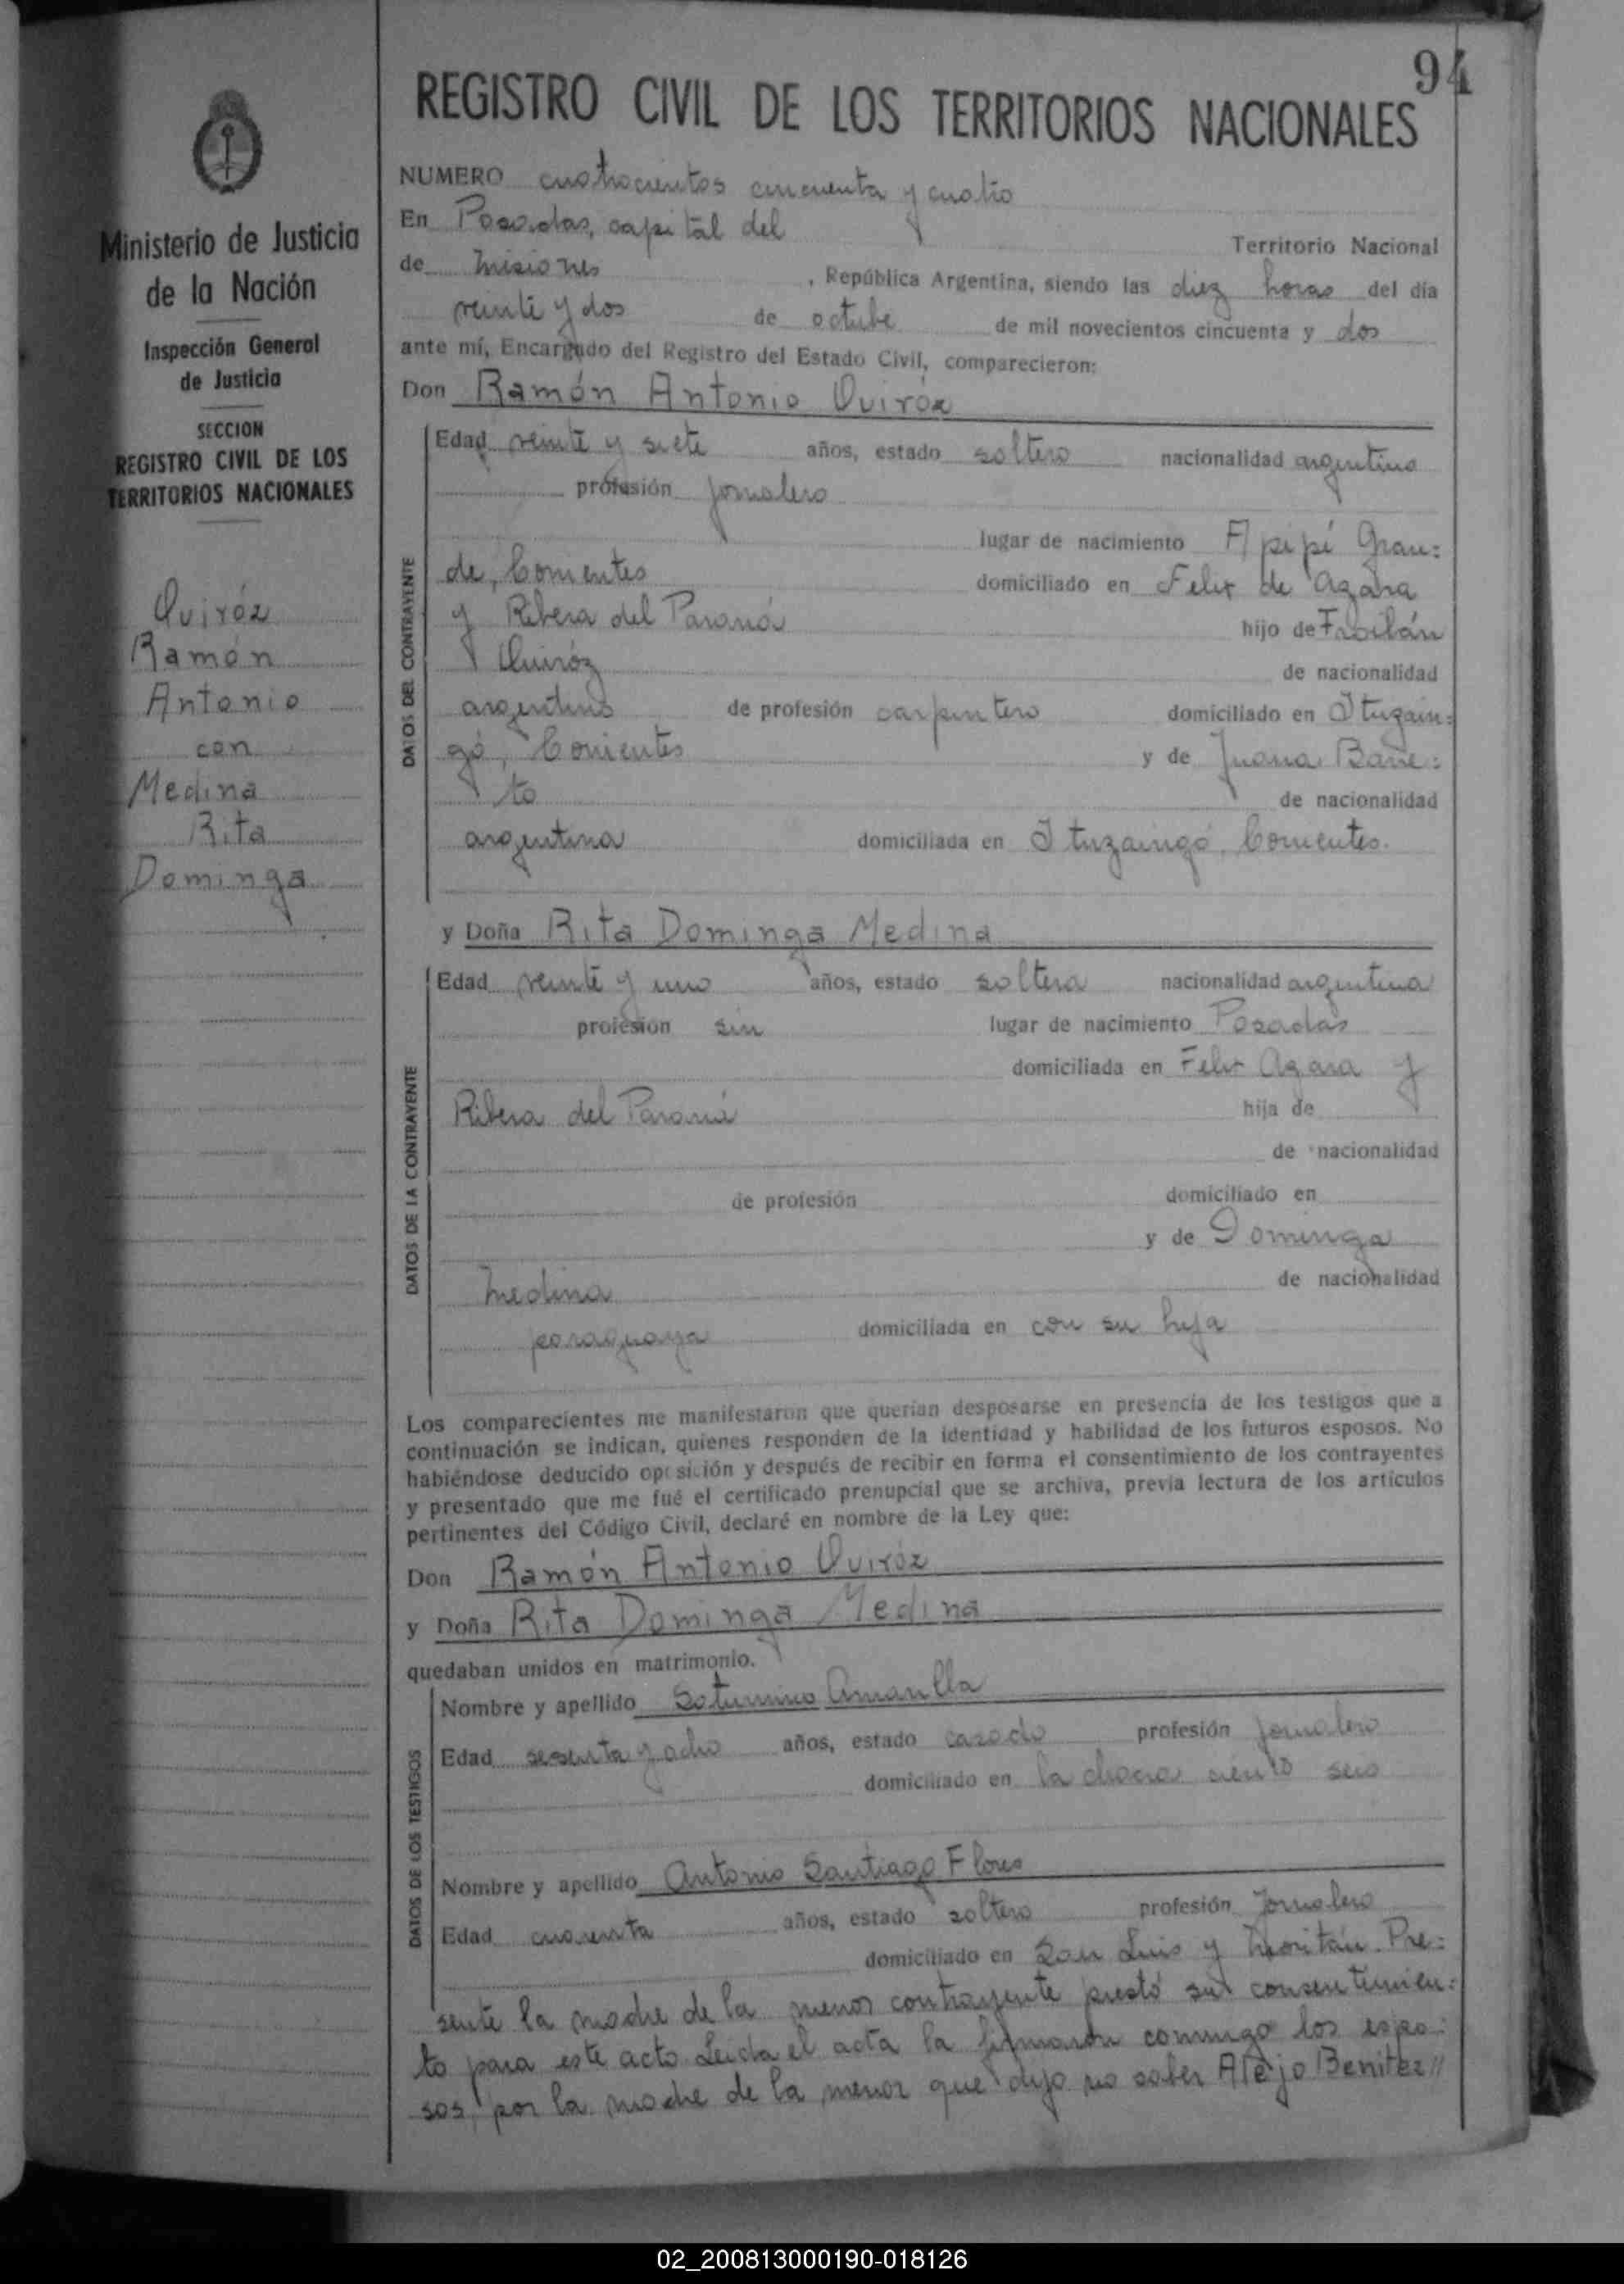 94
REGISTRO CIVIL DE LOS TERRITORIOS NACIONALES
Ministerio de Justicia
de la Nación
Inspección General
de Justicia
SECCION
REGISTRO CIVIL DE LOS
TERRITORIOS NACIONALES
Quiróz
Ramón
Antonio
con
Medina
Rita
Dominga
NUMERO cuatrocientos cincuenta y cuatro
En Posadas, capital del
Territorio Nacional
de Misiones, República Argentina, siendo las diez horas del día
veinte y dos de octubre de mil novecientos cincuenta y dos
ante mí, Encargado del Registro del Estado Civil, comparecieron:
Don Ramón Antonio Quiróz
DATOS DEL CONTRAYENTE
Edad veinte y siete años, estado soltero nacionalidad argentino
profesión jornalero
lugar de nacimiento Apipé Gran:
de, Corrientes domiciliado en Felix de Azara
y Ribera del Paraná hijo de Froilán
Quiróz de nacionalidad
argentino de profesión carpintero domiciliado en Ituzain:
gó, Corrientes y de Juana Barre:
to de nacionalidad
argentina domiciliada en Ituzaingó, Corrientes.
y Doña Rita Dominga Medina
DATOS DE LA CONTRAYENTE
Edad veinte y uno años, estado soltera nacionalidad argentina
profesión sin lugar de nacimiento Posadas
domiciliada en Felix Azara y
Ribera del Paraná hija de
de nacionalidad
de profesión domiciliado en
y de Dominga
Medina de nacionalidad
paraguaya domiciliada en con su hija
Los comparecientes me manifestaron que querían desposarse en presencia de los testigos que a
continuación se indican, quienes responden de la identidad y habilidad de los futuros esposos. No
habiéndose deducido oposición y después de recibir en forma el consentimiento de los contrayentes
y presentado que me fué el certificado prenupcial que se archiva, previa lectura de los artículos
pertinentes del Código Civil, declaré en nombre de la Ley que:
Don Ramón Antonio Quiróz
y Doña Rita Dominga Medina
quedaban unidos en matrimonio.
DATOS DE LOS TESTIGOS
Nombre y apellido Saturnino Amarilla
Edad sesenta y ocho años, estado casado profesión jornalero
domiciliado en la chacra ciento seis
Nombre y apellido Antonio Santiago Flores
Edad cuarenta años, estado soltero profesión jornalero
domiciliado en San Luis y Pre:
sente la madre de la menor contrayente prestó su consentimien:
to para este acto. Leída el acta la firmaron conmigo los espo:
sos, por la madre de la menor que dijo no saber Alejo Benitez//
02_200813000190-018126